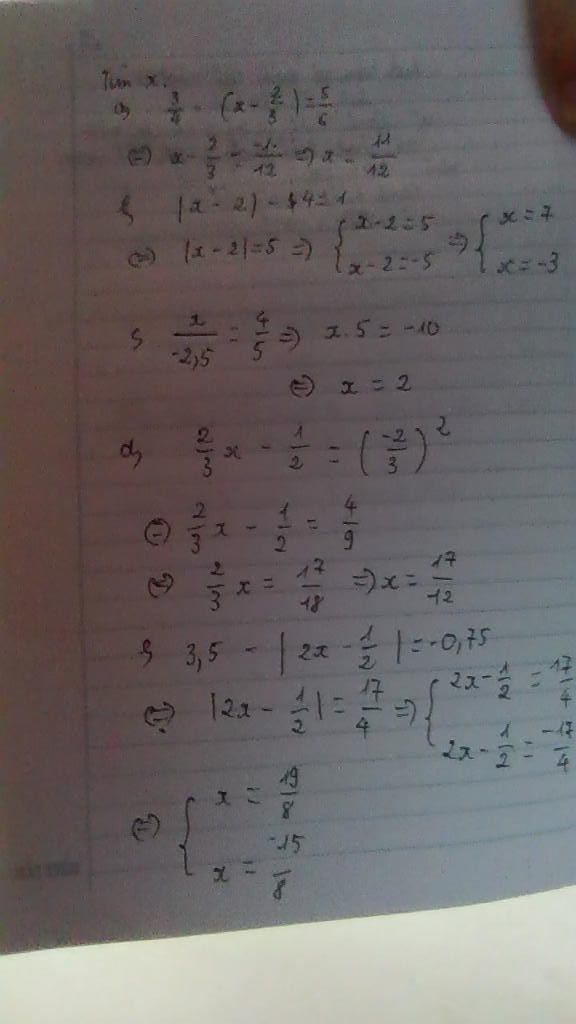 Tìm x:
a, 3/4 - (x - 2/3) = 5/6
(=) x - 2/3 = -1/12 => x = 11/12
|x - 2| - 4 = 1
(=) |x - 2| = 5 => { x - 2 = 5 x - 2 = -5 => { x = 7 x = -3
x/-2,5 = 4/5 => x.5 = -10
(=) x = 2
d, 2/3 x - 1/2 = (-2/3)^2
(=) 2/3 x - 1/2 = 4/9
(=) 2/3 x = 17/18 => x = 17/12
3,5 - |2x - 1/2| = -0,75
(=) |2x - 1/2| = 17/4 => { 2x - 1/2 = 17/4 2x - 1/2 = -17/4
(=) { x = 19/8 x = -15/8